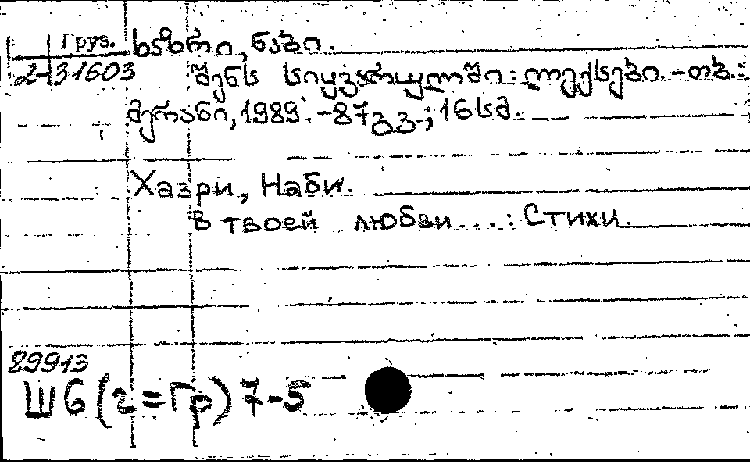 Груз. ხაზრი, ნაბი.
2-31603 შენს სიყვარულში : ლექსები. - თბ. :
მერანი, 1989. - 87 გვ. ; 16 სმ.
Хазри, Наби.
В твоей любви... : Стихи.
89913
Ш6(2=Гр)7-5